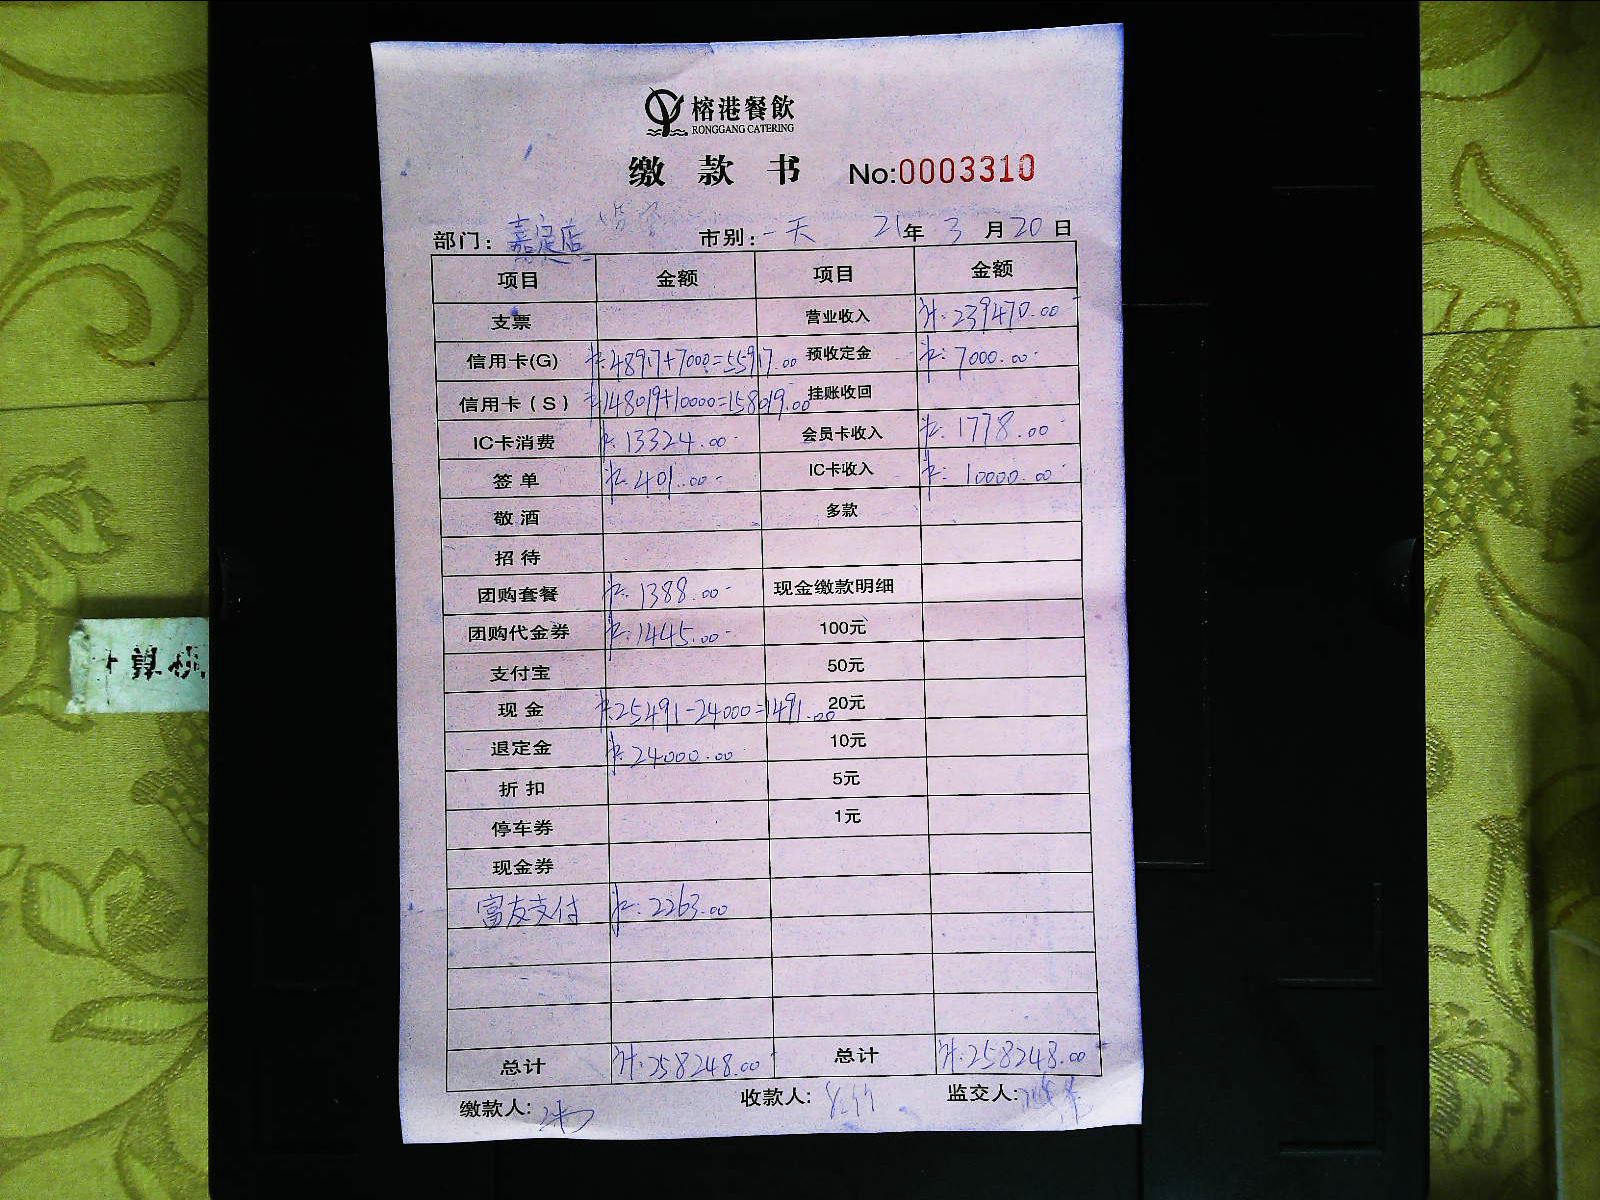 榕港餐飲
RONGGANG CATERING
缴款书 No:0003310
部门: 嘉定店 市别: 一天 21年 3月20日
项目 金额 项目 金额
支票 营业收入 ¥:239470.00
信用卡(G) ¥:48917+7000=55917.00 预收定金 ¥:7000.00
信用卡(S) ¥:148019+10000=158019.00 挂账收回
IC卡消费 ¥:13324.00 会员卡收入 ¥:1778.00
签单 ¥:401.00 IC卡收入 ¥:10000.00
敬酒 多款
招待
团购套餐 ¥:1388.00 现金缴款明细
团购代金券 ¥:1445.00 100元
支付宝 50元
现金 ¥:25491-24000=1491.00 20元
退定金 ¥:24000.00 10元
折扣 5元
停车券 1元
现金券
富友支付 ¥:2263.00
总计 ¥:258248.00 总计 ¥:258248.00
缴款人: 收款人: 监交人: